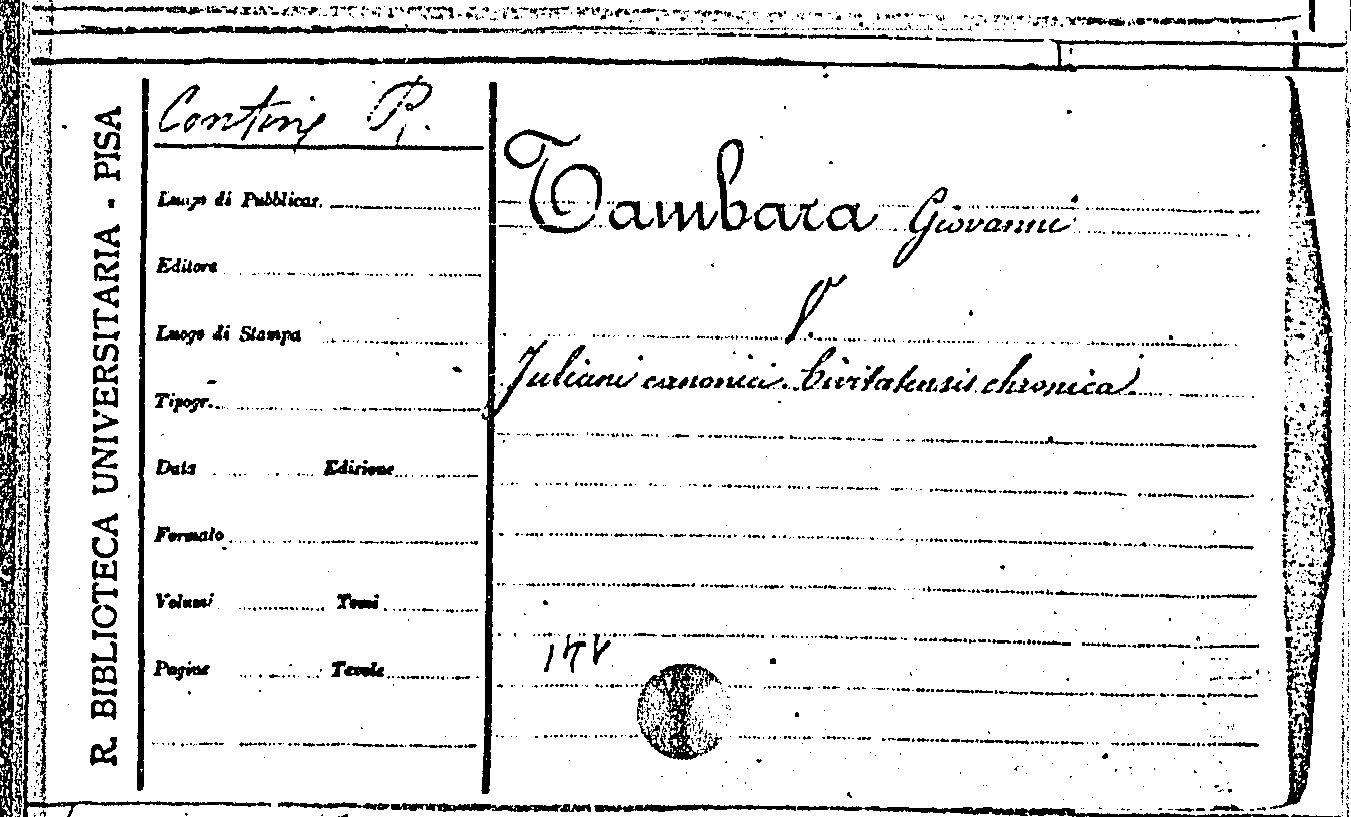 R. BIBLIOTECA UNIVERSITARIA - PISA
Contin. P.
Luogo di Pubblicaz.
Editore
Luogo di Stampa
Tipogr.
Data Edizione
Formato
Volumi Tomi
Pagine Tavole
Tambara Giovanni
V.
Juliani canonici Civitatensis chronica.